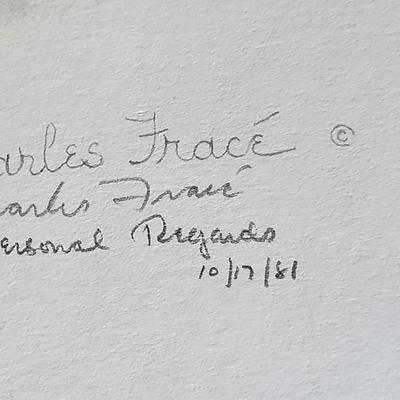 arles Fracé ©
arles Fracé
ersonal Regards
10/17/81